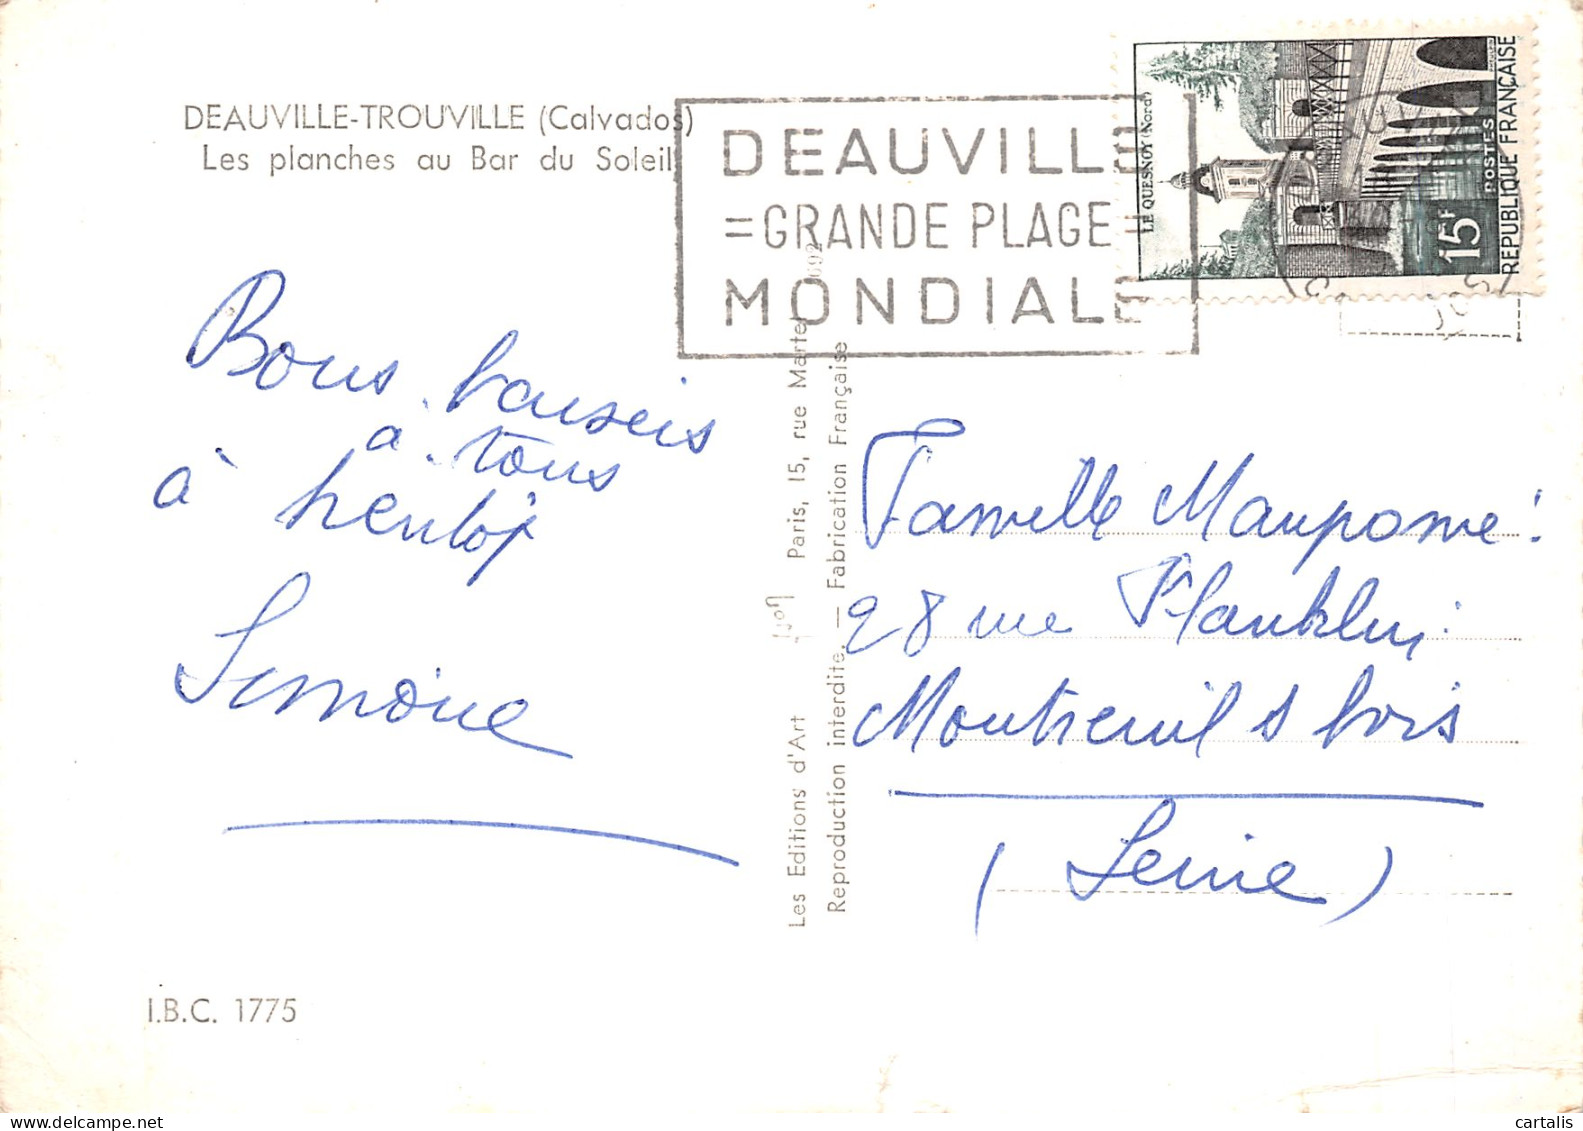 DEAUVILLE-TROUVILLE (Calvados)
Les planches au Bar du Soleil
DEAUVILLE
=GRANDE PLAGE=
MONDIALE
LE QUESNOY (Nord)
15F
POSTES
REPUBLIQUE FRANÇAISE
Bons baisers
à tous
à bientôt
Simone
Les Editions d'Art Lyon Paris, 15, rue Martel
Reproduction interdite. — Fabrication Française
Famille Maupomé
28 rue Franklin
Montreuil s bois
(Seine)
I.B.C. 1775
cartalis